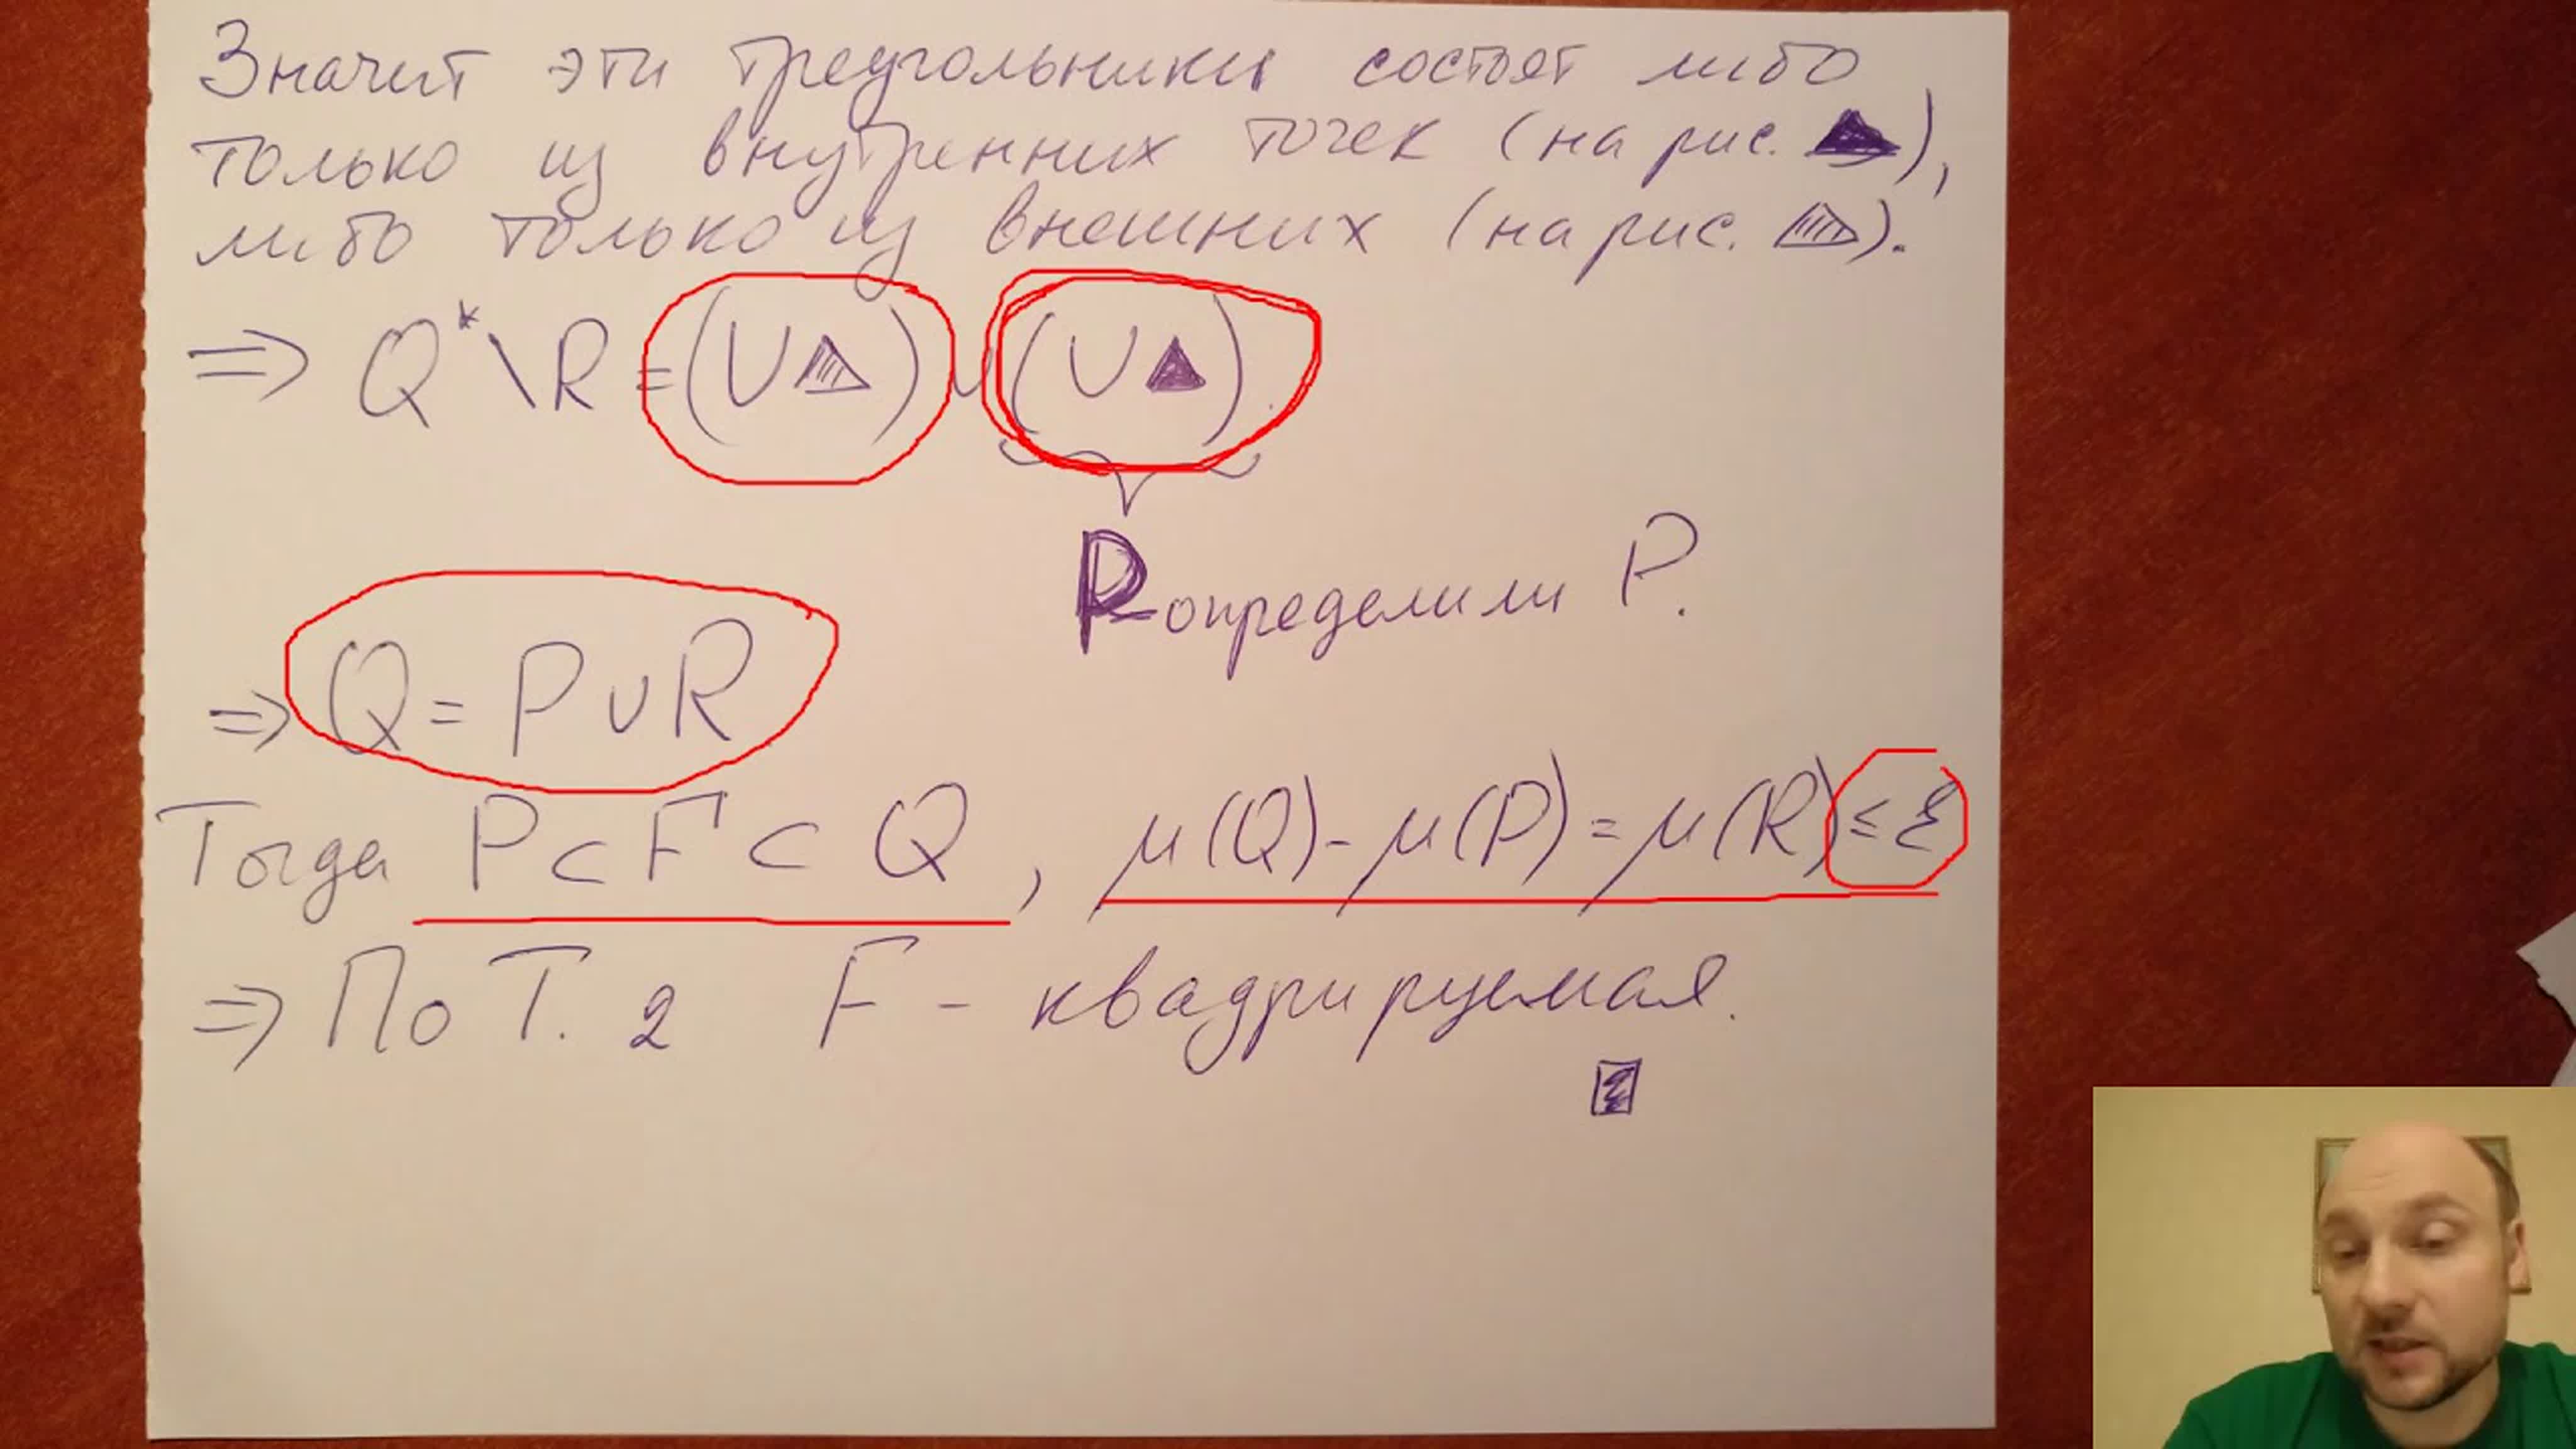 Значит эти треугольники состоят либо
только из внутренних точек (на рис. ▲),
либо только из внешних (на рис. △).
=> Q* \ R = (∪△) ∪ (∪▲)
P определили P.
=> Q = P ∪ R
Тогда P ⊂ F ⊂ Q, μ(Q) - μ(P) = μ(R) ≤ ε
=> По Т. 2 F - квадрируемая.